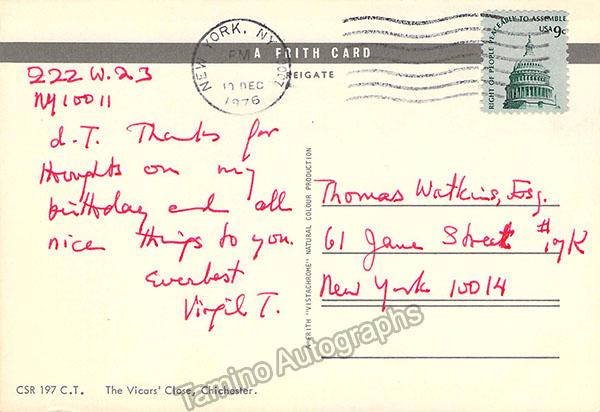 NEW YORK, NY
PM
10 DEC
1976
RIGHT OF PEOPLE PEACEABLY TO ASSEMBLE
USA 9c
A FRITH CARD
REIGATE
222 W. 23
NY 10011
d. T. Thanks for
thoughts on my
birthday and all
nice things to you.
Everbest
Virgil T.
A FRITH "VISTACHROME" NATURAL COLOUR PRODUCTION
Thomas Watkins, Esq.
61 Jane Street #17K
New York 10014
CSR 197 C.T. The Vicars' Close, Chichester.
Tamino Autographs